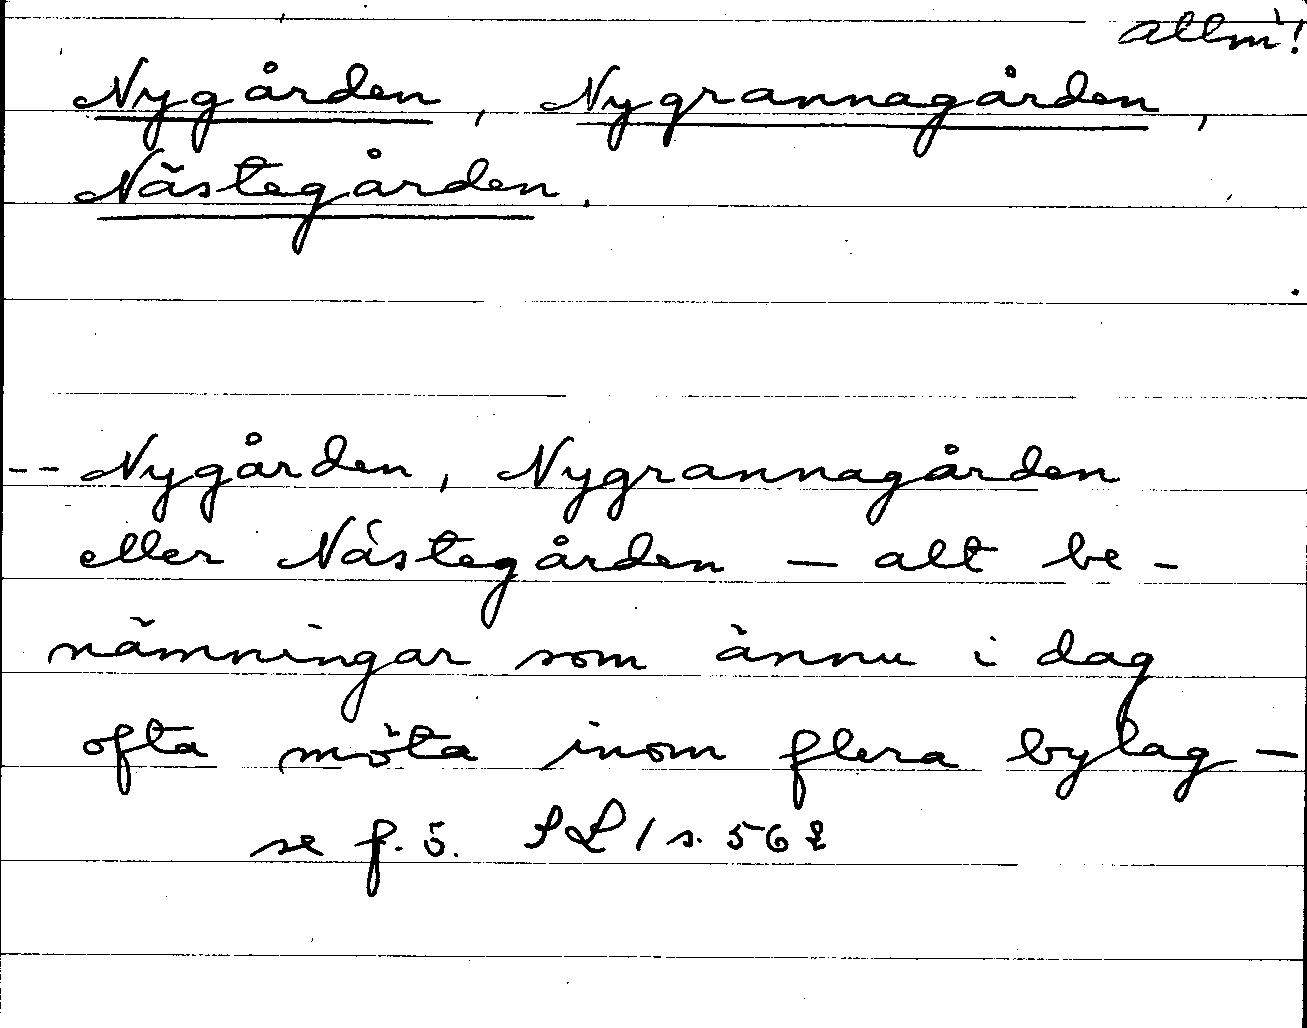 allm!
Nygården, Nygrannagården,
Nästegården.
-- Nygården, Nygrannagården
eller Nästegården – alt be-
nämningar som ännu i dag
ofta möta inom flera bylag –
se f.ö. SL 1 s. 562